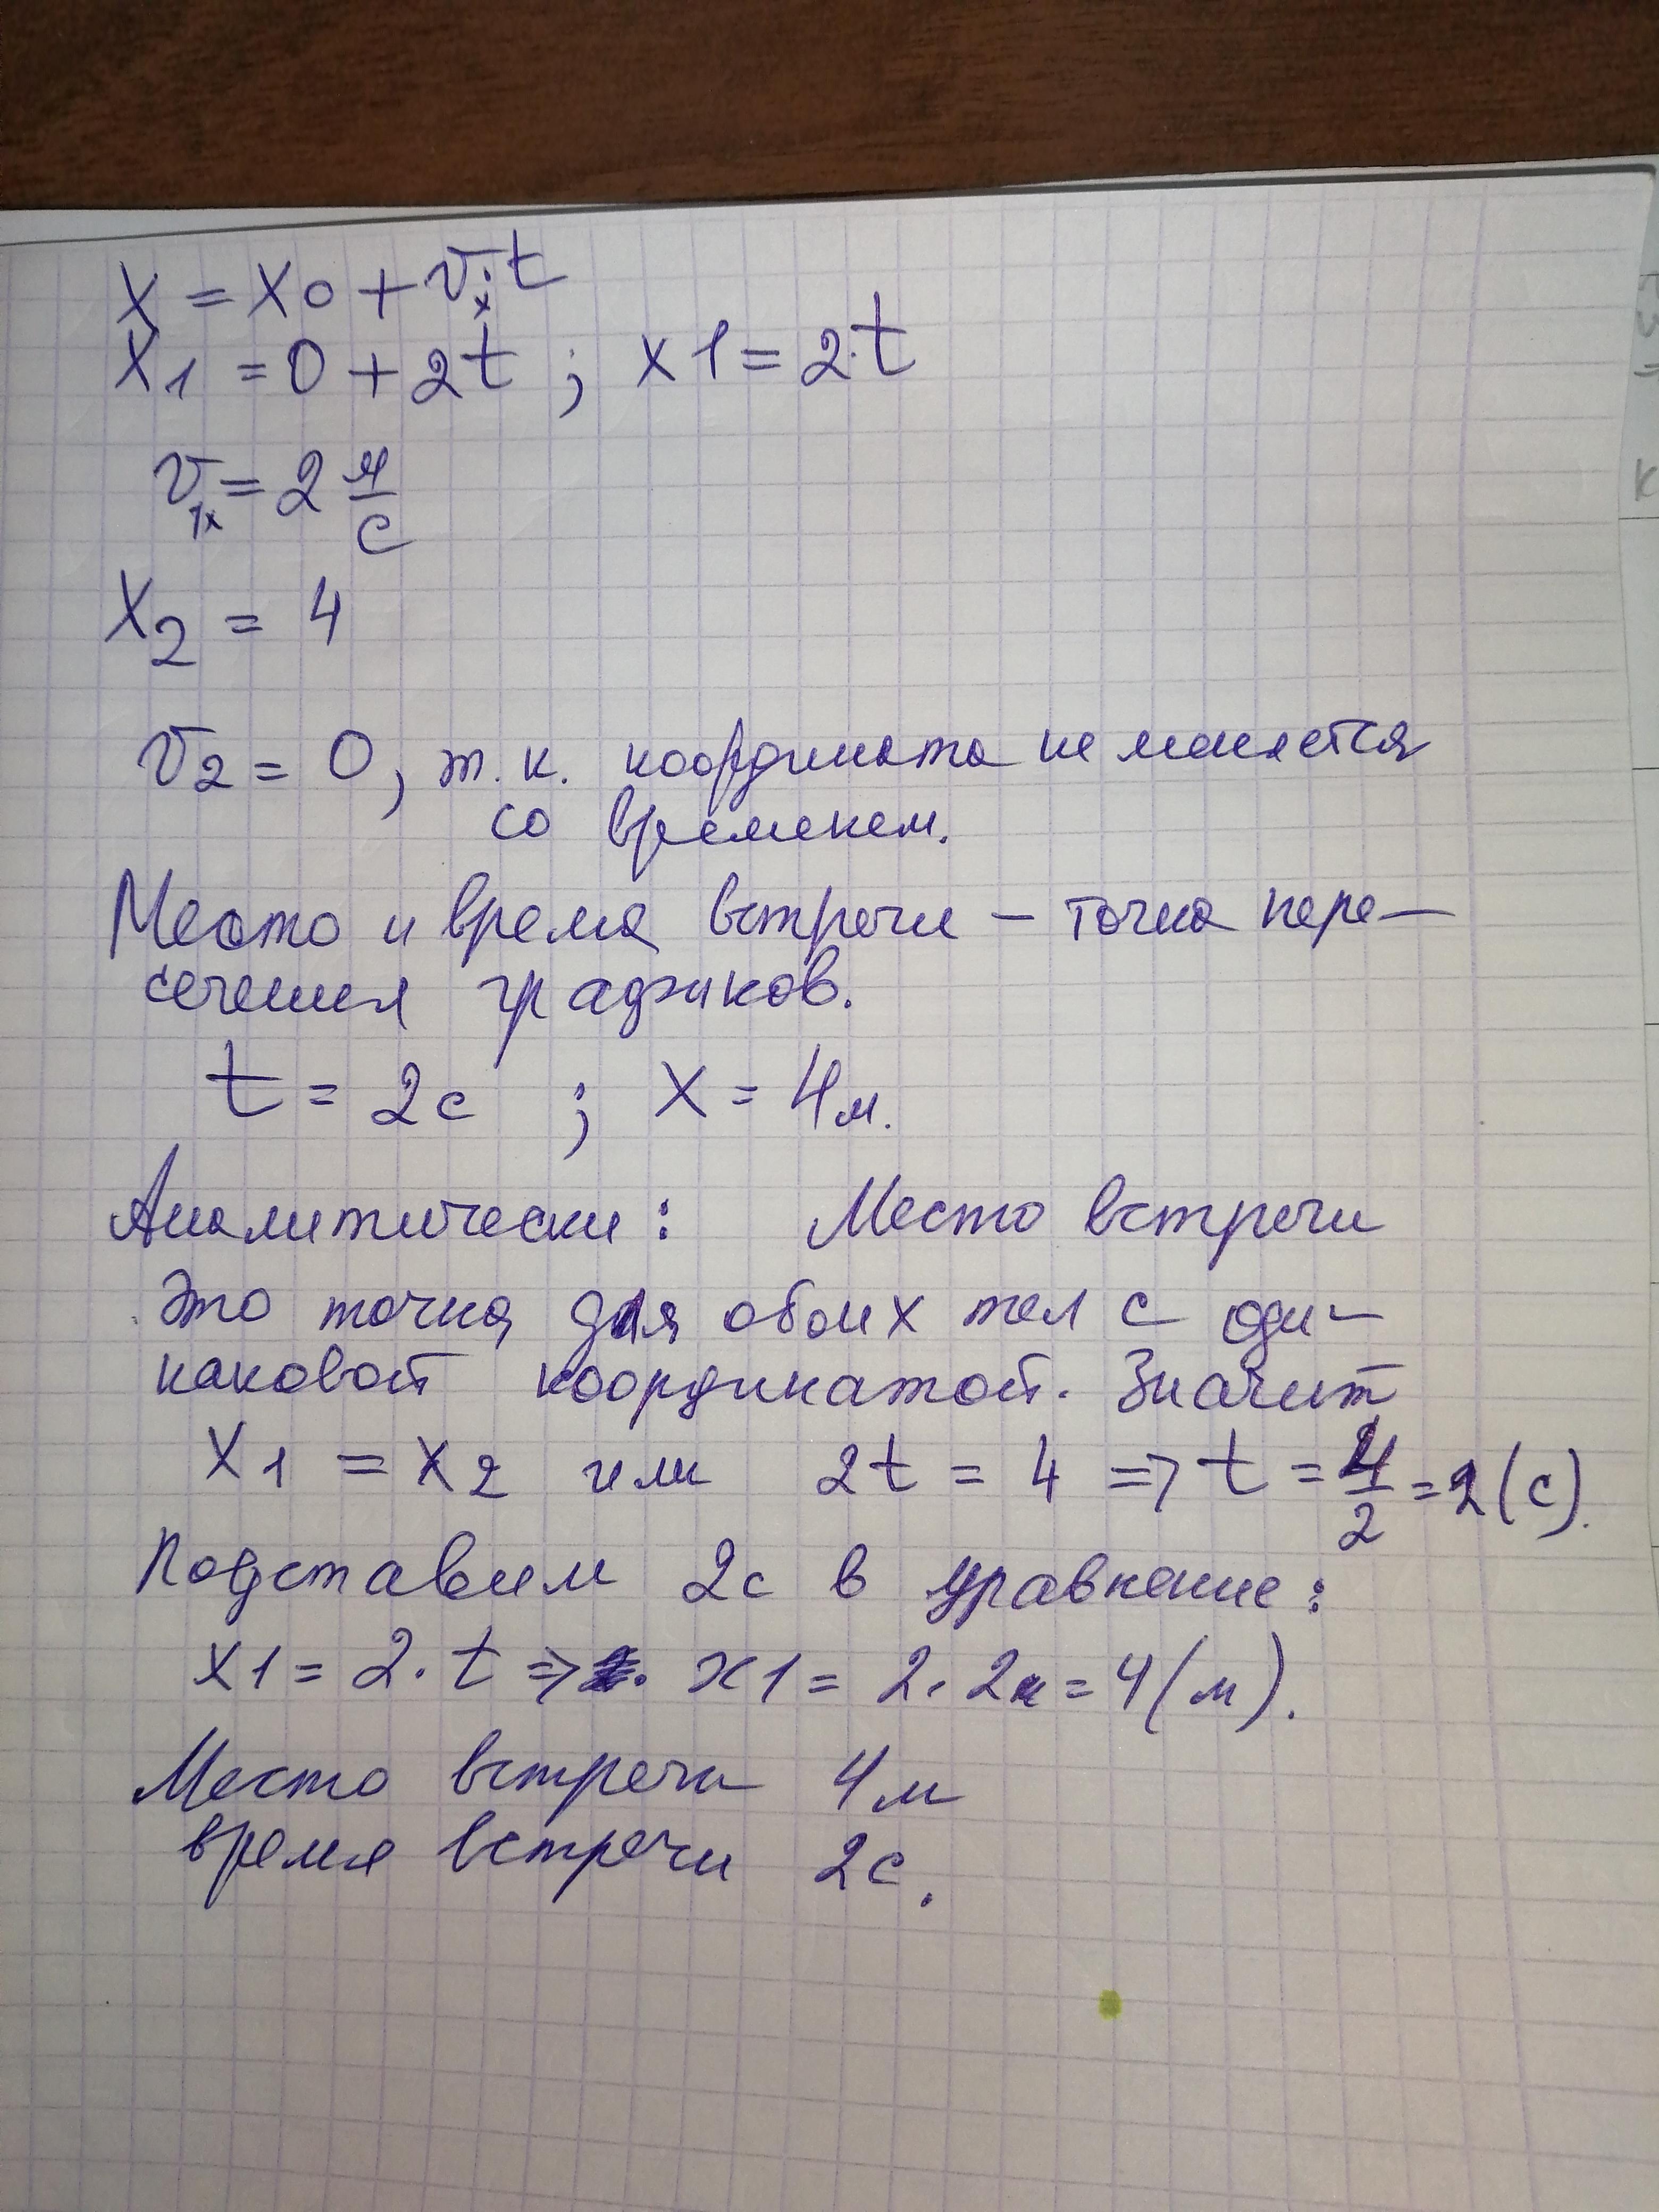 x = x0 + v_x · t
x1 = 0 + 2t ; x1 = 2·t
v_1x = 2 м/с
x2 = 4
v2 = 0, т. к. координата не меняется
со временем.
Место и время встречи – точка пере–
сечения графиков.
t = 2с ; x = 4м.
Аналитически : Место встречи
это точка для обоих тел с оди–
наковой координатой. Значит
x1 = x2 или 2t = 4 => t = 4/2 = 2 (с).
Подставим 2с в уравнение :
x1 = 2 · t => x1 = 2 · 2 = 4 (м).
Место встречи 4м
время встречи 2с.